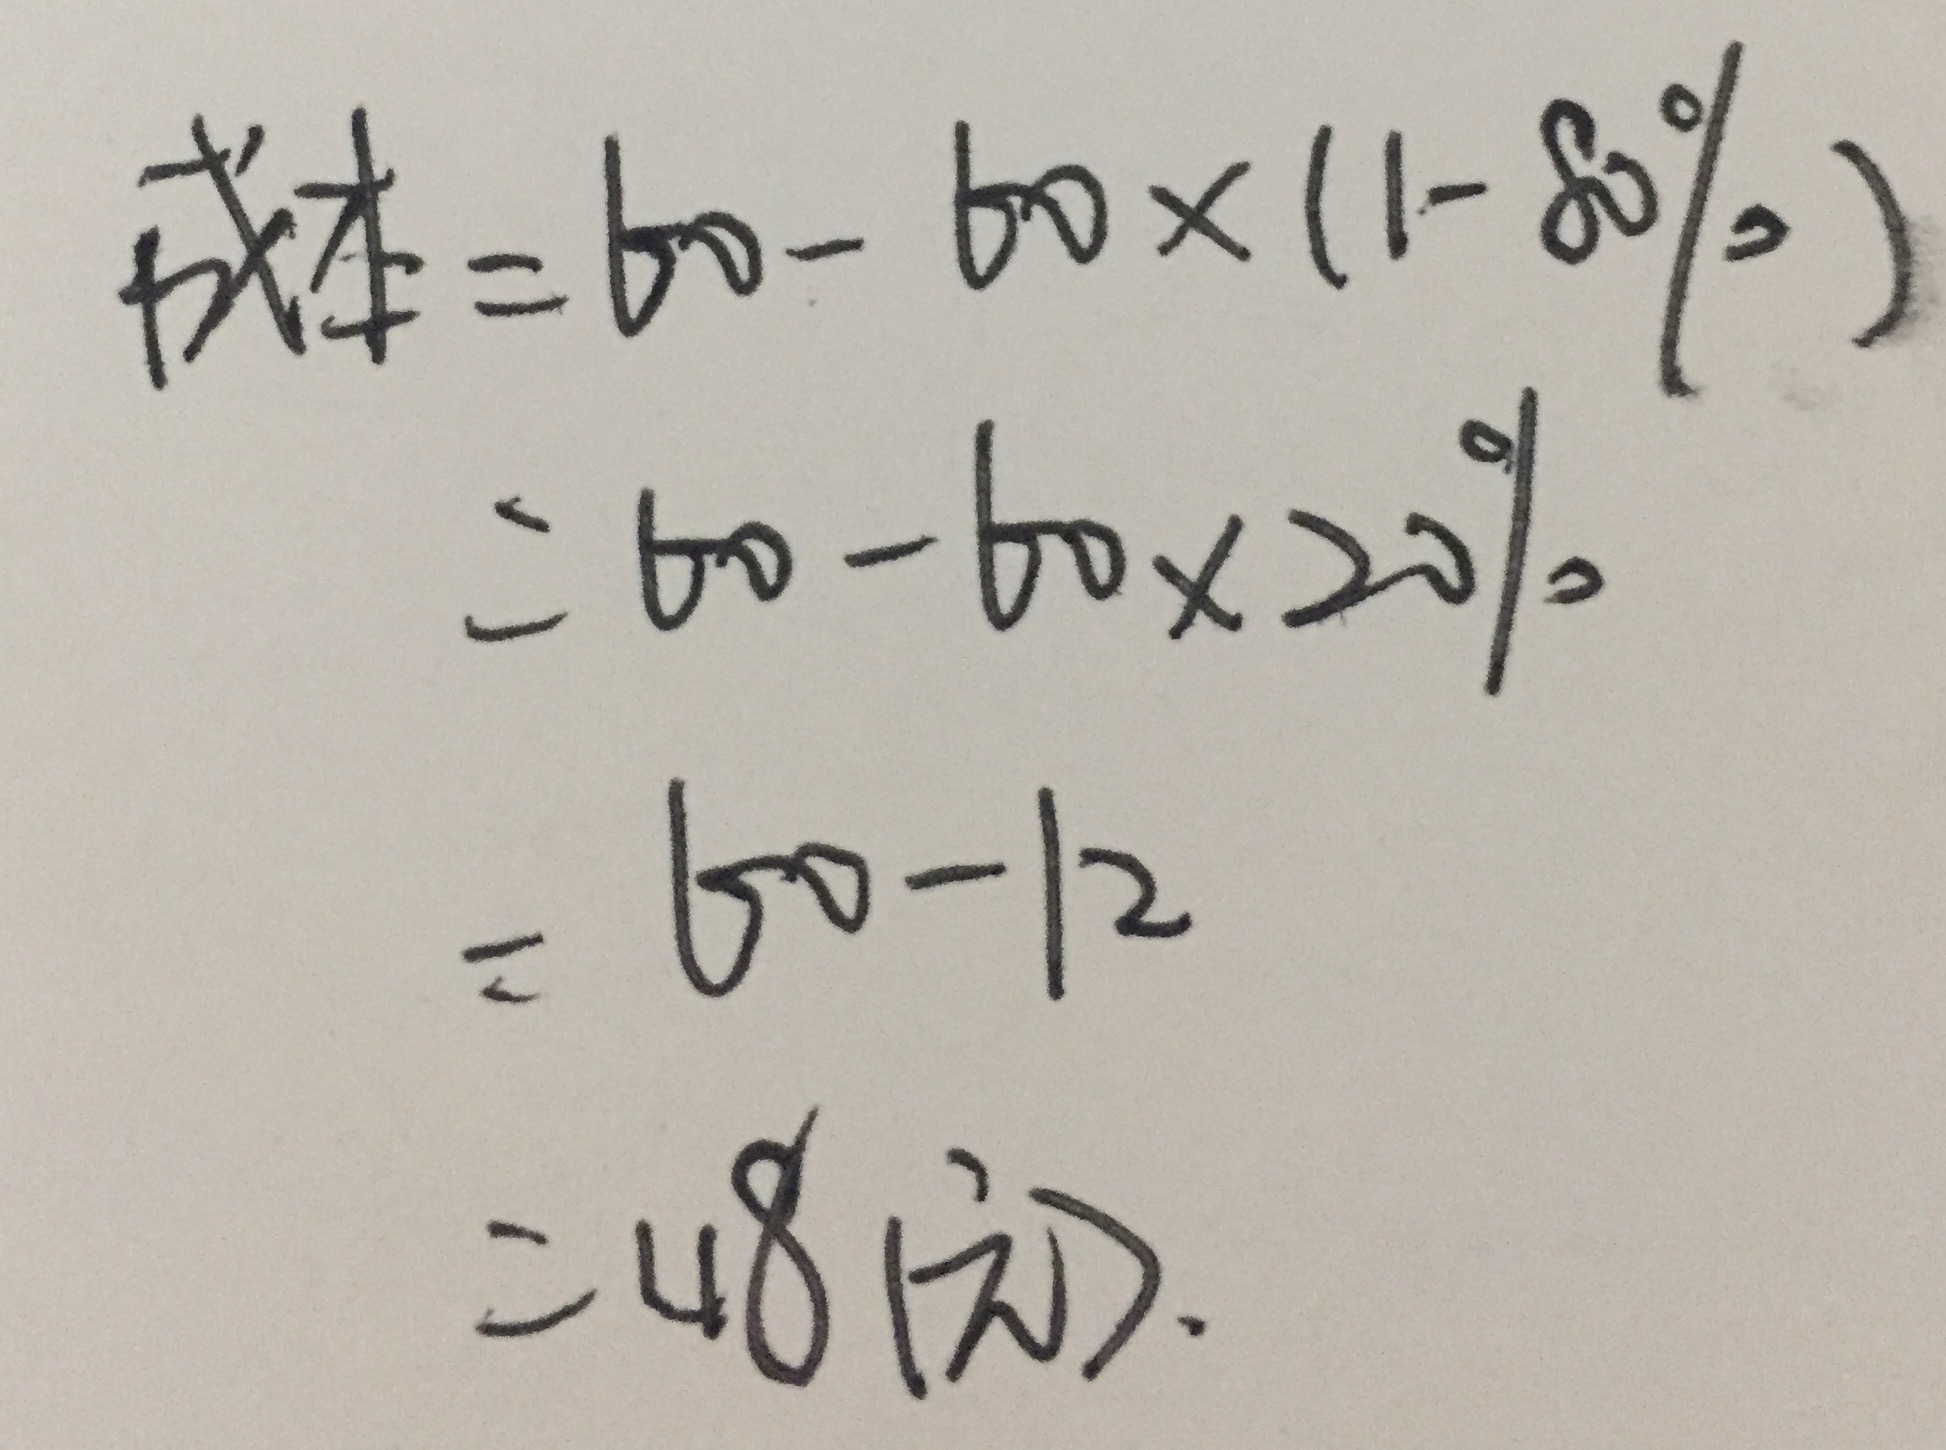 成本=60-60×(1-80%)
=60-60×20%
=60-12
=48(元).